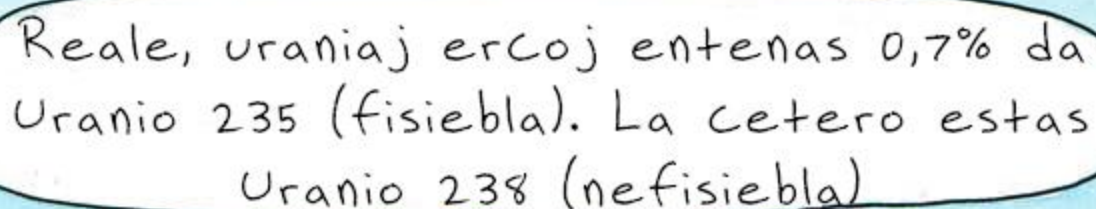 Reale, uraniaj ercoj entenas 0,7% da
Uranio 235 (fisiebla). La cetero estas
Uranio 238 (nefisiebla)